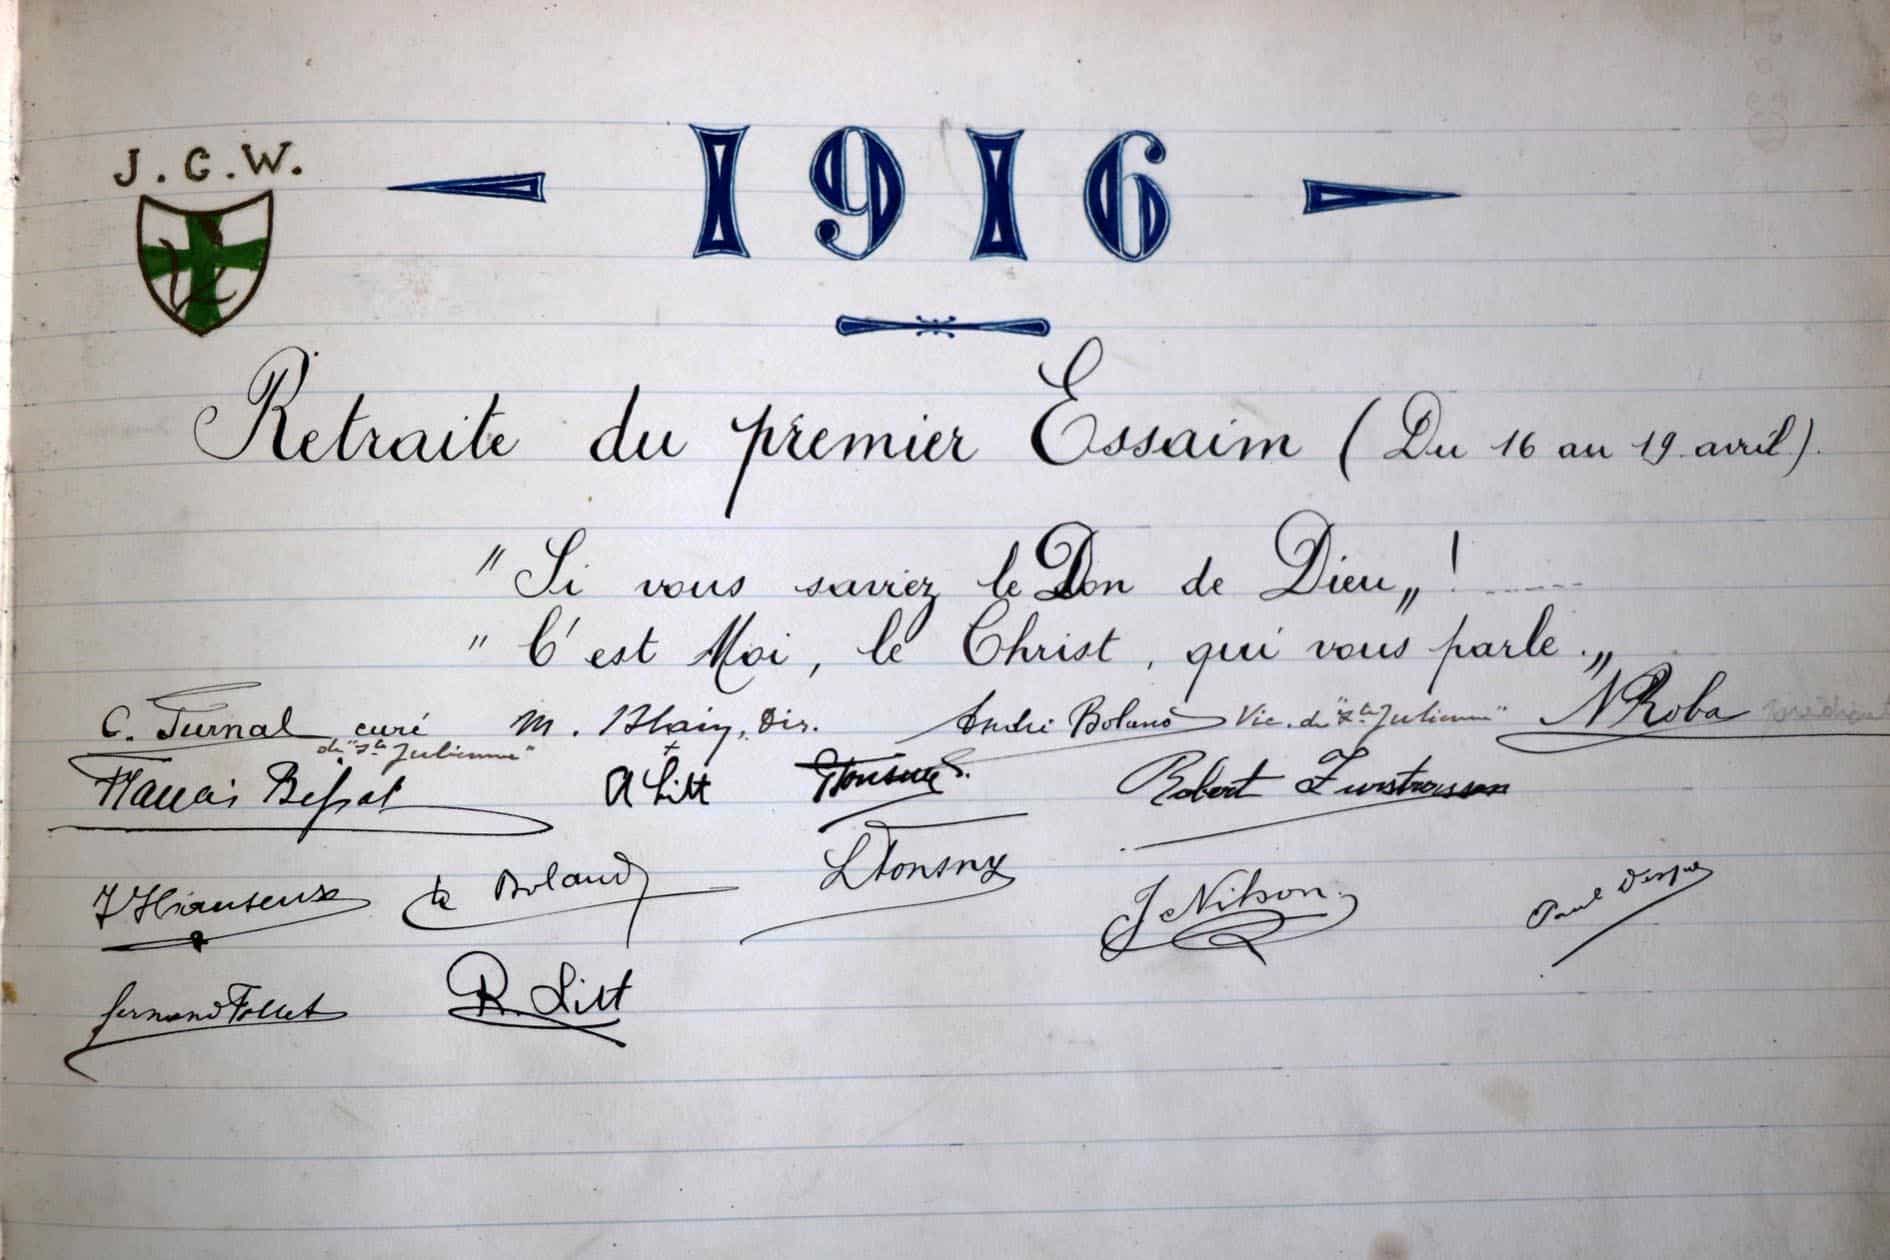 J. C. W.
1916
Retraite du premier Essaim (Du 16 au 19 avril).
" Si vous saviez le Don de Dieu „ !
" C'est Moi, le Christ, qui vous parle. „
C. Turnal curé M. Dir. André Boland Vic. de "Ste Julienne" N Roba
de "Ste Julienne"
A Litt Robert
Boland L J Nilson Paul
Fernand Follet R. Litt